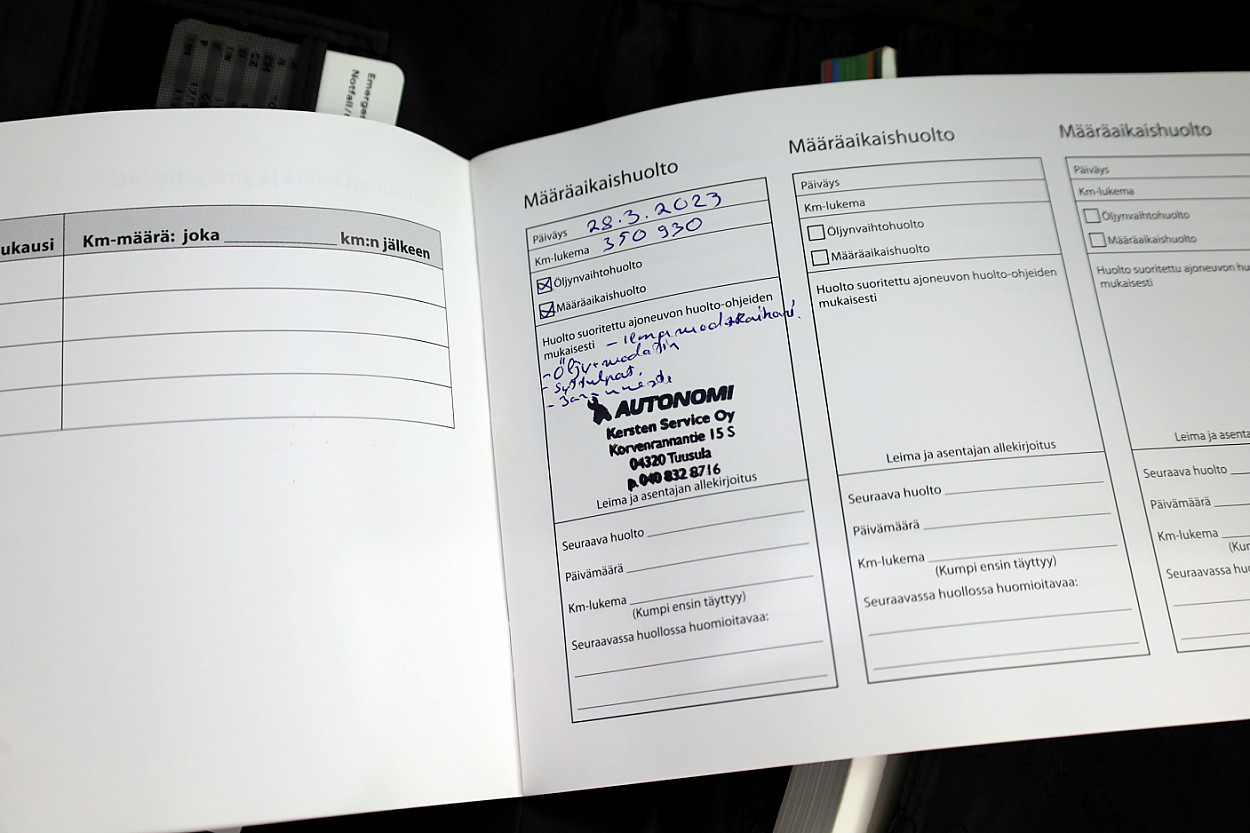 Emerge
Notfall/
ukausi
Km-määrä: joka ____________ km:n jälkeen
Määräaikaishuolto
Päiväys 28.3.2023
Km-lukema 350 930
Öljynvaihtohuolto
Määräaikaishuolto
Huolto suoritettu ajoneuvon huolto-ohjeiden
mukaisesti
AUTONOMI
Kersten Service Oy
Korvenrannantie 15 S
04320 Tuusula
p.040 832 8716
Leima ja asentajan allekirjoitus
Seuraava huolto
Päivämäärä
Km-lukema
(Kumpi ensin täyttyy)
Seuraavassa huollossa huomioitavaa:
Määräaikaishuolto
Päiväys
Km-lukema
Öljynvaihtohuolto
Määräaikaishuolto
Huolto suoritettu ajoneuvon huolto-ohjeiden
mukaisesti
Leima ja asentajan allekirjoitus
Seuraava huolto
Päivämäärä
Km-lukema
(Kumpi ensin täyttyy)
Seuraavassa huollossa huomioitavaa:
Määräaikaishuolto
Päiväys
Km-lukema
Öljynvaihtohuolto
Määräaikaishuolto
Huolto suoritettu ajoneuvon hu
mukaisesti
Leima ja asenta
Seuraava huolto
Päivämäärä
Km-lukema
(Kur
Seuraavassa huo